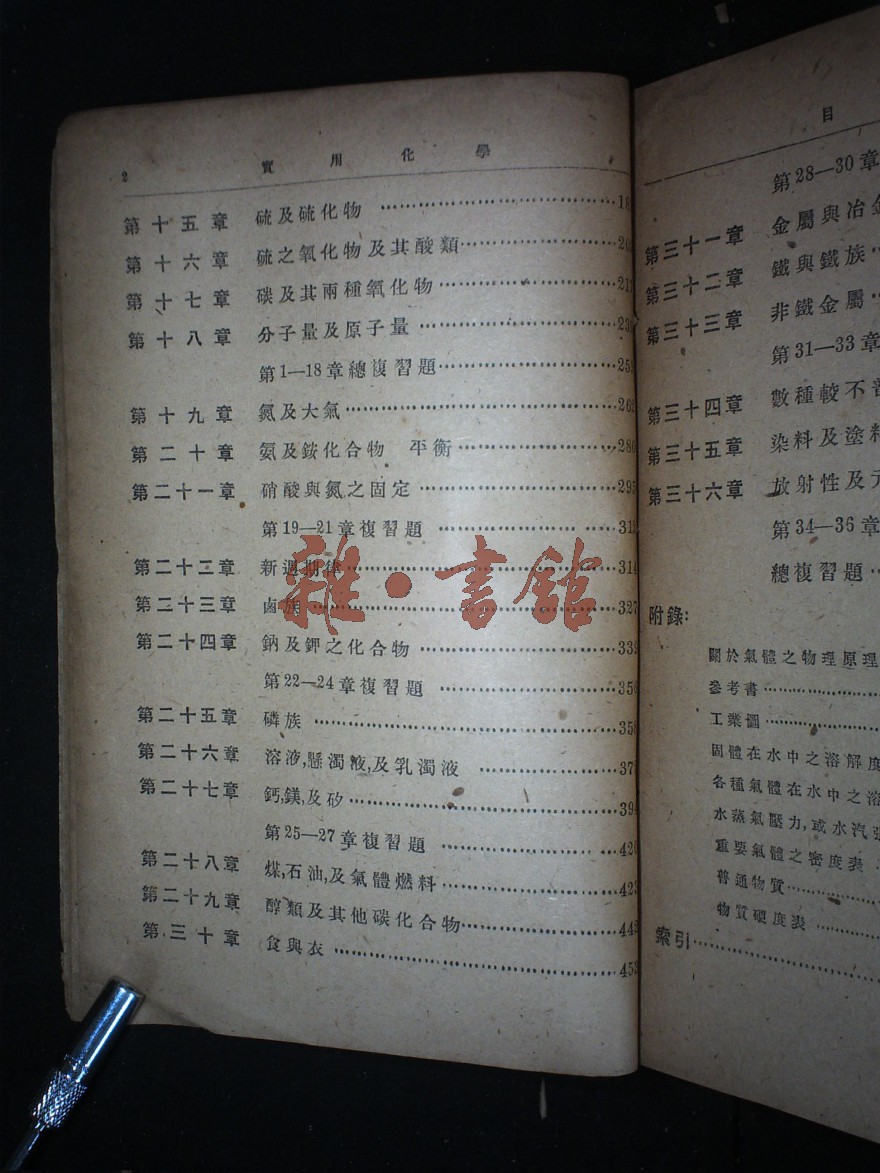 2 實用化學
第十五章 硫及硫化物 18
第十六章 硫之氧化物及其酸類 20
第十七章 碳及其兩種氧化物 21
第十八章 分子量及原子量 23
第1—18章總複習題 25
第十九章 氮及大氣 26
第二十章 氨及銨化合物 平衡 280
第二十一章 硝酸與氮之固定 295
第19—21章複習題 31
第二十二章 新週期律 314
第二十三章 鹵族 327
第二十四章 鈉及鉀之化合物 339
第22—24章複習題 35
第二十五章 磷族 35
第二十六章 溶液,懸濁液,及乳濁液 37
第二十七章 鈣,鎂,及矽 394
第25—27章複習題 420
第二十八章 煤,石油,及氣體燃料 423
第二十九章 醇類及其他碳化合物 442
第三十章 食與衣 453
雜·書館
目
第28—30章
第三十一章 金屬與冶金
第三十二章 鐵與鐵族
第三十三章 非鐵金屬
第31—33章
第三十四章 數種較不普
第三十五章 染料及塗料
第三十六章 放射性及元
第34—36章
總複習題
附錄:
關於氣體之物理原理
參考書
工業圖
固體在水中之溶解度
各種氣體在水中之溶
水蒸氣壓力,或水汽張
重要氣體之密度表
普通物質
物質硬度表
索引